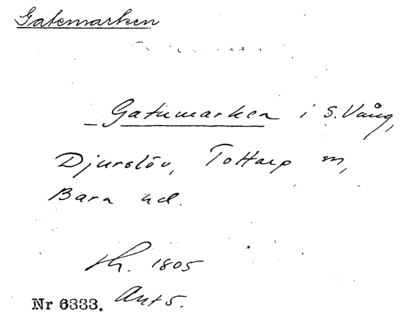 Gatemarken
Gatumarken i S. Vång,
Djurslöv, Tottarp m,
Bara hd.
th. 1805
Nr 6333. Ant 5.